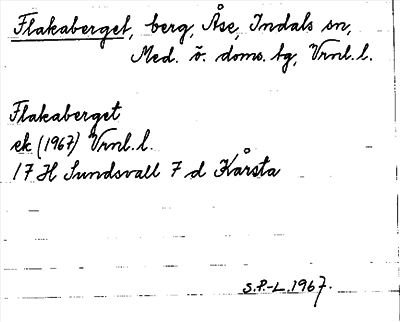 Flakaberget, berg, Åse, Indals sn,
Med. ö. doms. tg, Vrnl. l.
Flakaberget
ek (1967) Vrnl. l.
17 H Sundsvall 7 d Kårsta
S.P.-L. 1967.